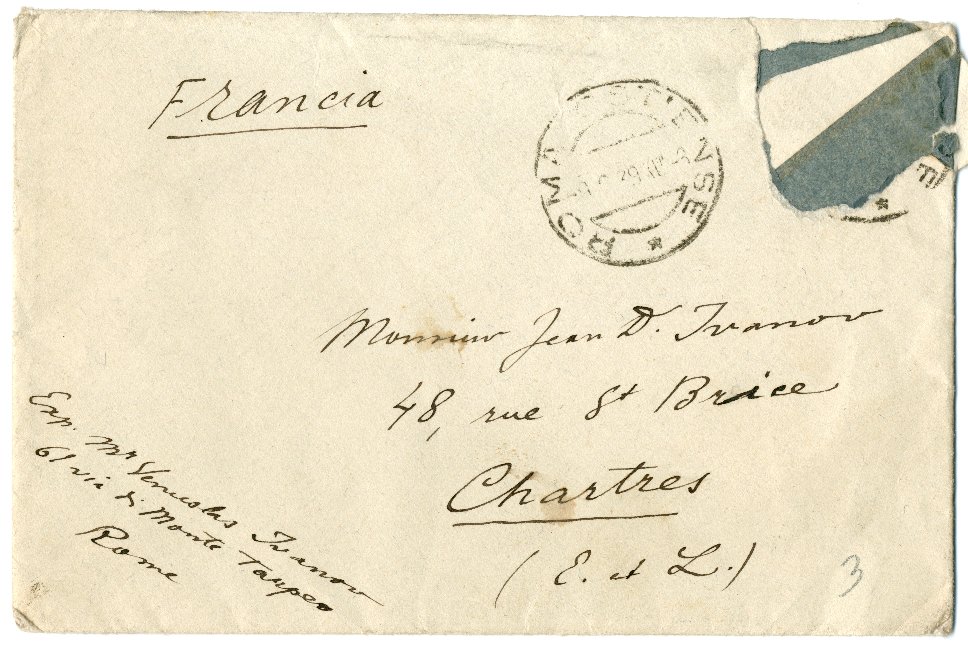 Francia
ROMA OSTIENSE *
39 XVII
E *
Monsieur Jean D. Ivanov
48, rue St Brice
Chartres
(E. et L.)
Exp. Mr Venceslas Ivanov
61 via di Monte Tarpeo
Rome
3